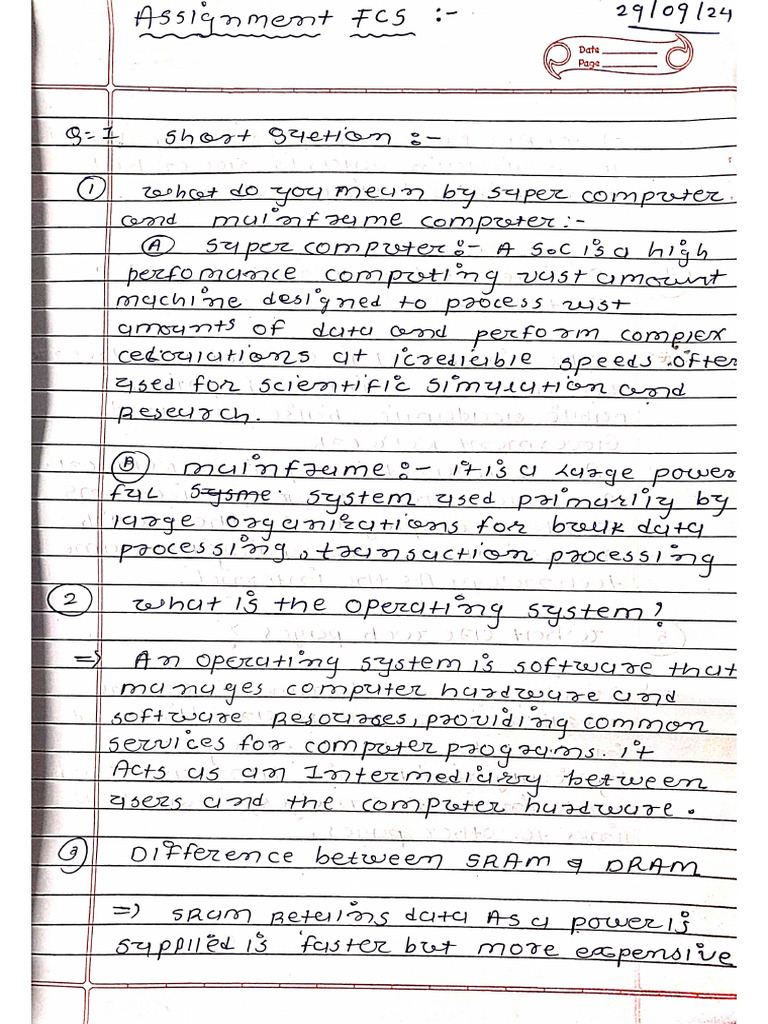 Assignment FCS :-
29/09/24
Date
Page
Q=1 Short Quetion :-
① What do you mean by super computer
and mainframe computer:-
Ⓐ Super computer:- A SOC is a high
perfomance computing vast amount
machine designed to process vast
amounts of data and perform complex
calculations at icredicible speeds often
used for scientific simulation and
Research.
Ⓑ mainframe:- it is a large power
ful Sysme. system used primarily by
large organizations for bulk data
processing, transaction processing
② What is the operating system?
⇒ An operating system is software that
manages computer hardware and
software Resources, providing common
services for computer programs. it
Acts as an Intermediary between
users and the computer hardware.
③ Difference between SRAM & DRAM
⇒ SRAM Retains data As a power is
supplied is faster but more expensive